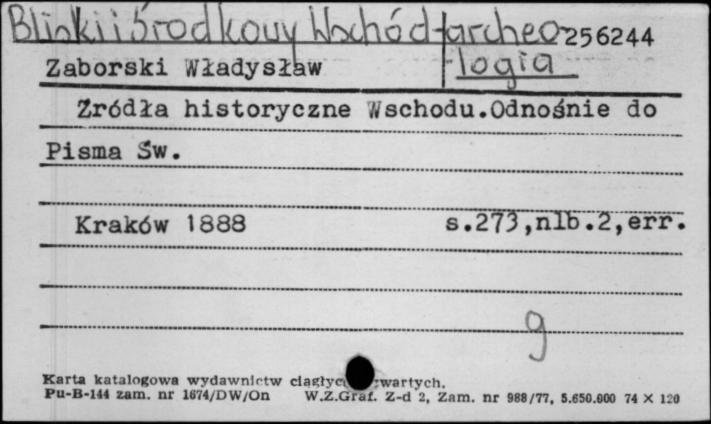 Bliski i Środkowy Wschód - archeo- 256244
Zaborski Władysław - logia
Źródła historyczne Wschodu.Odnośnie do
Pisma Św.
Kraków 1888 s.273,nlb.2,err.
g
Karta katalogowa wydawnictw ciągłyc wartych.
Pu-B-144 zam. nr 1674/DW/On W.Z.Graf. Z-d 2, Zam. nr 988/77, 5.650.000 74 X 120